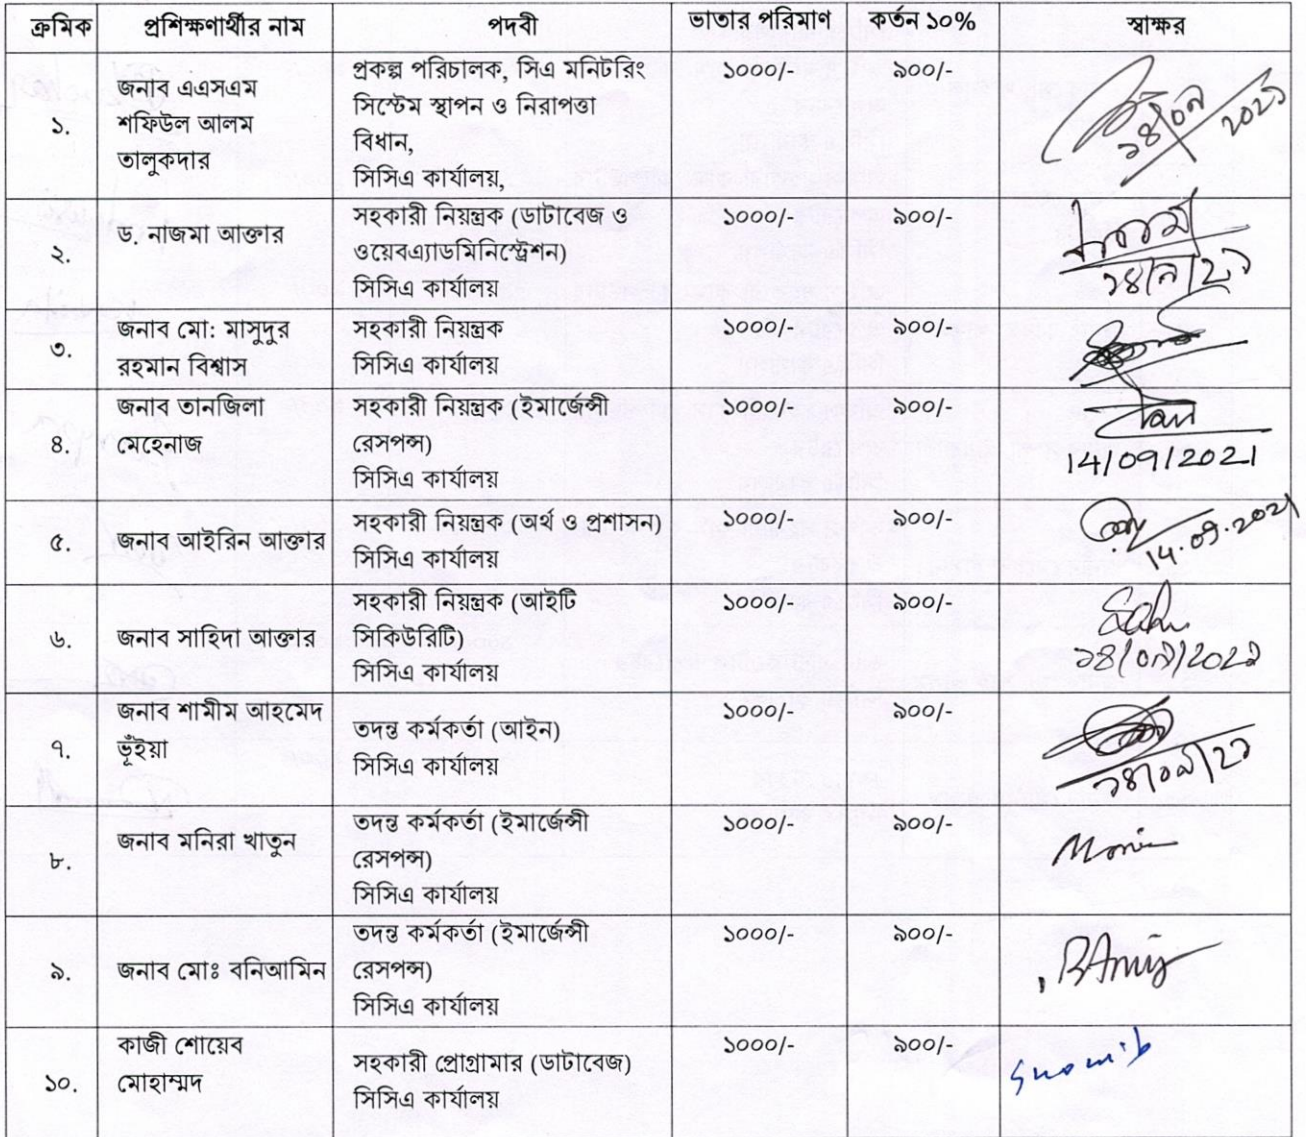 ক্রমিক প্রশিক্ষণার্থীর নাম পদবী ভাতার পরিমাণ কর্তন ১০% স্বাক্ষর
১. জনাব এএসএম
শফিউল আলম
তালুকদার
প্রকল্প পরিচালক, সিএ মনিটরিং
সিস্টেম স্থাপন ও নিরাপত্তা
বিধান,
সিসিএ কার্যালয়,
১০০০/- ৯০০/-
১৪/০৯/২০২১
২. ড. নাজমা আক্তার
সহকারী নিয়ন্ত্রক (ডাটাবেজ ও
ওয়েবএ্যাডমিনিস্ট্রেশন)
সিসিএ কার্যালয়
১০০০/- ৯০০/-
১৪/৯/২১
৩. জনাব মো: মাসুদুর
রহমান বিশ্বাস
সহকারী নিয়ন্ত্রক
সিসিএ কার্যালয়
১০০০/- ৯০০/-
৪. জনাব তানজিলা
মেহেনাজ
সহকারী নিয়ন্ত্রক (ইমার্জেন্সী
রেসপন্স)
সিসিএ কার্যালয়
১০০০/- ৯০০/-
14/09/2021
৫. জনাব আইরিন আক্তার
সহকারী নিয়ন্ত্রক (অর্থ ও প্রশাসন)
সিসিএ কার্যালয়
১০০০/- ৯০০/-
14.09.2021
৬. জনাব সাহিদা আক্তার
সহকারী নিয়ন্ত্রক (আইটি
সিকিউরিটি)
সিসিএ কার্যালয়
১০০০/- ৯০০/-
১৪/০৯/২০২১
৭. জনাব শামীম আহমেদ
ভূঁইয়া
তদন্ত কর্মকর্তা (আইন)
সিসিএ কার্যালয়
১০০০/- ৯০০/-
১৪/০৯/২১
৮. জনাব মনিরা খাতুন
তদন্ত কর্মকর্তা (ইমার্জেন্সী
রেসপন্স)
সিসিএ কার্যালয়
১০০০/- ৯০০/-
৯. জনাব মোঃ বনিআমিন
তদন্ত কর্মকর্তা (ইমার্জেন্সী
রেসপন্স)
সিসিএ কার্যালয়
১০০০/- ৯০০/-
১০. কাজী শোয়েব
মোহাম্মদ
সহকারী প্রোগ্রামার (ডাটাবেজ)
সিসিএ কার্যালয়
১০০০/- ৯০০/-